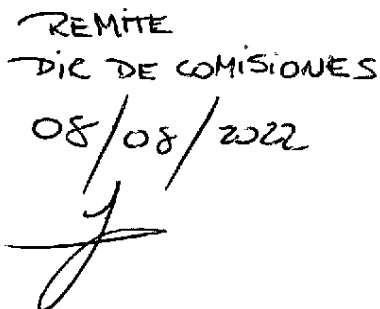 REMITE
DIR DE COMISIONES
08/08/2022